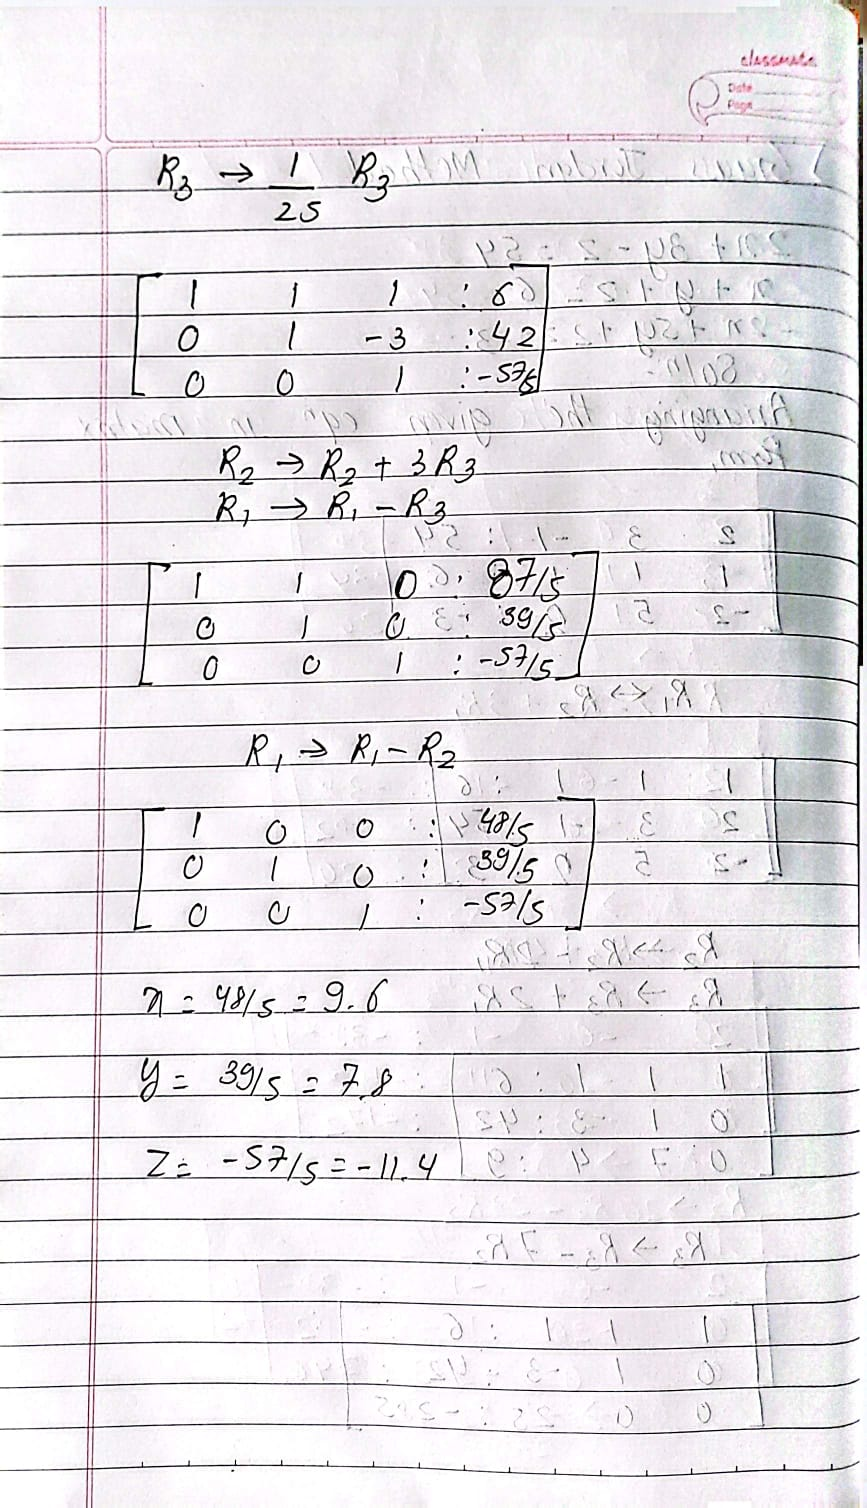 classmate
Date
Page
R₃ → 1/25 R₃
[ 1 1 1 : 6 ]
[ 0 1 -3 : 42 ]
[ 0 0 1 : -57/5 ]
R₂ → R₂ + 3R₃
R₁ → R₁ - R₃
[ 1 1 0 : 87/5 ]
[ 0 1 0 : 39/5 ]
[ 0 0 1 : -57/5 ]
R₁ → R₁ - R₂
[ 1 0 0 : 48/5 ]
[ 0 1 0 : 39/5 ]
[ 0 0 1 : -57/5 ]
x = 48/5 = 9.6
y = 39/5 = 7.8
z = -57/5 = -11.4